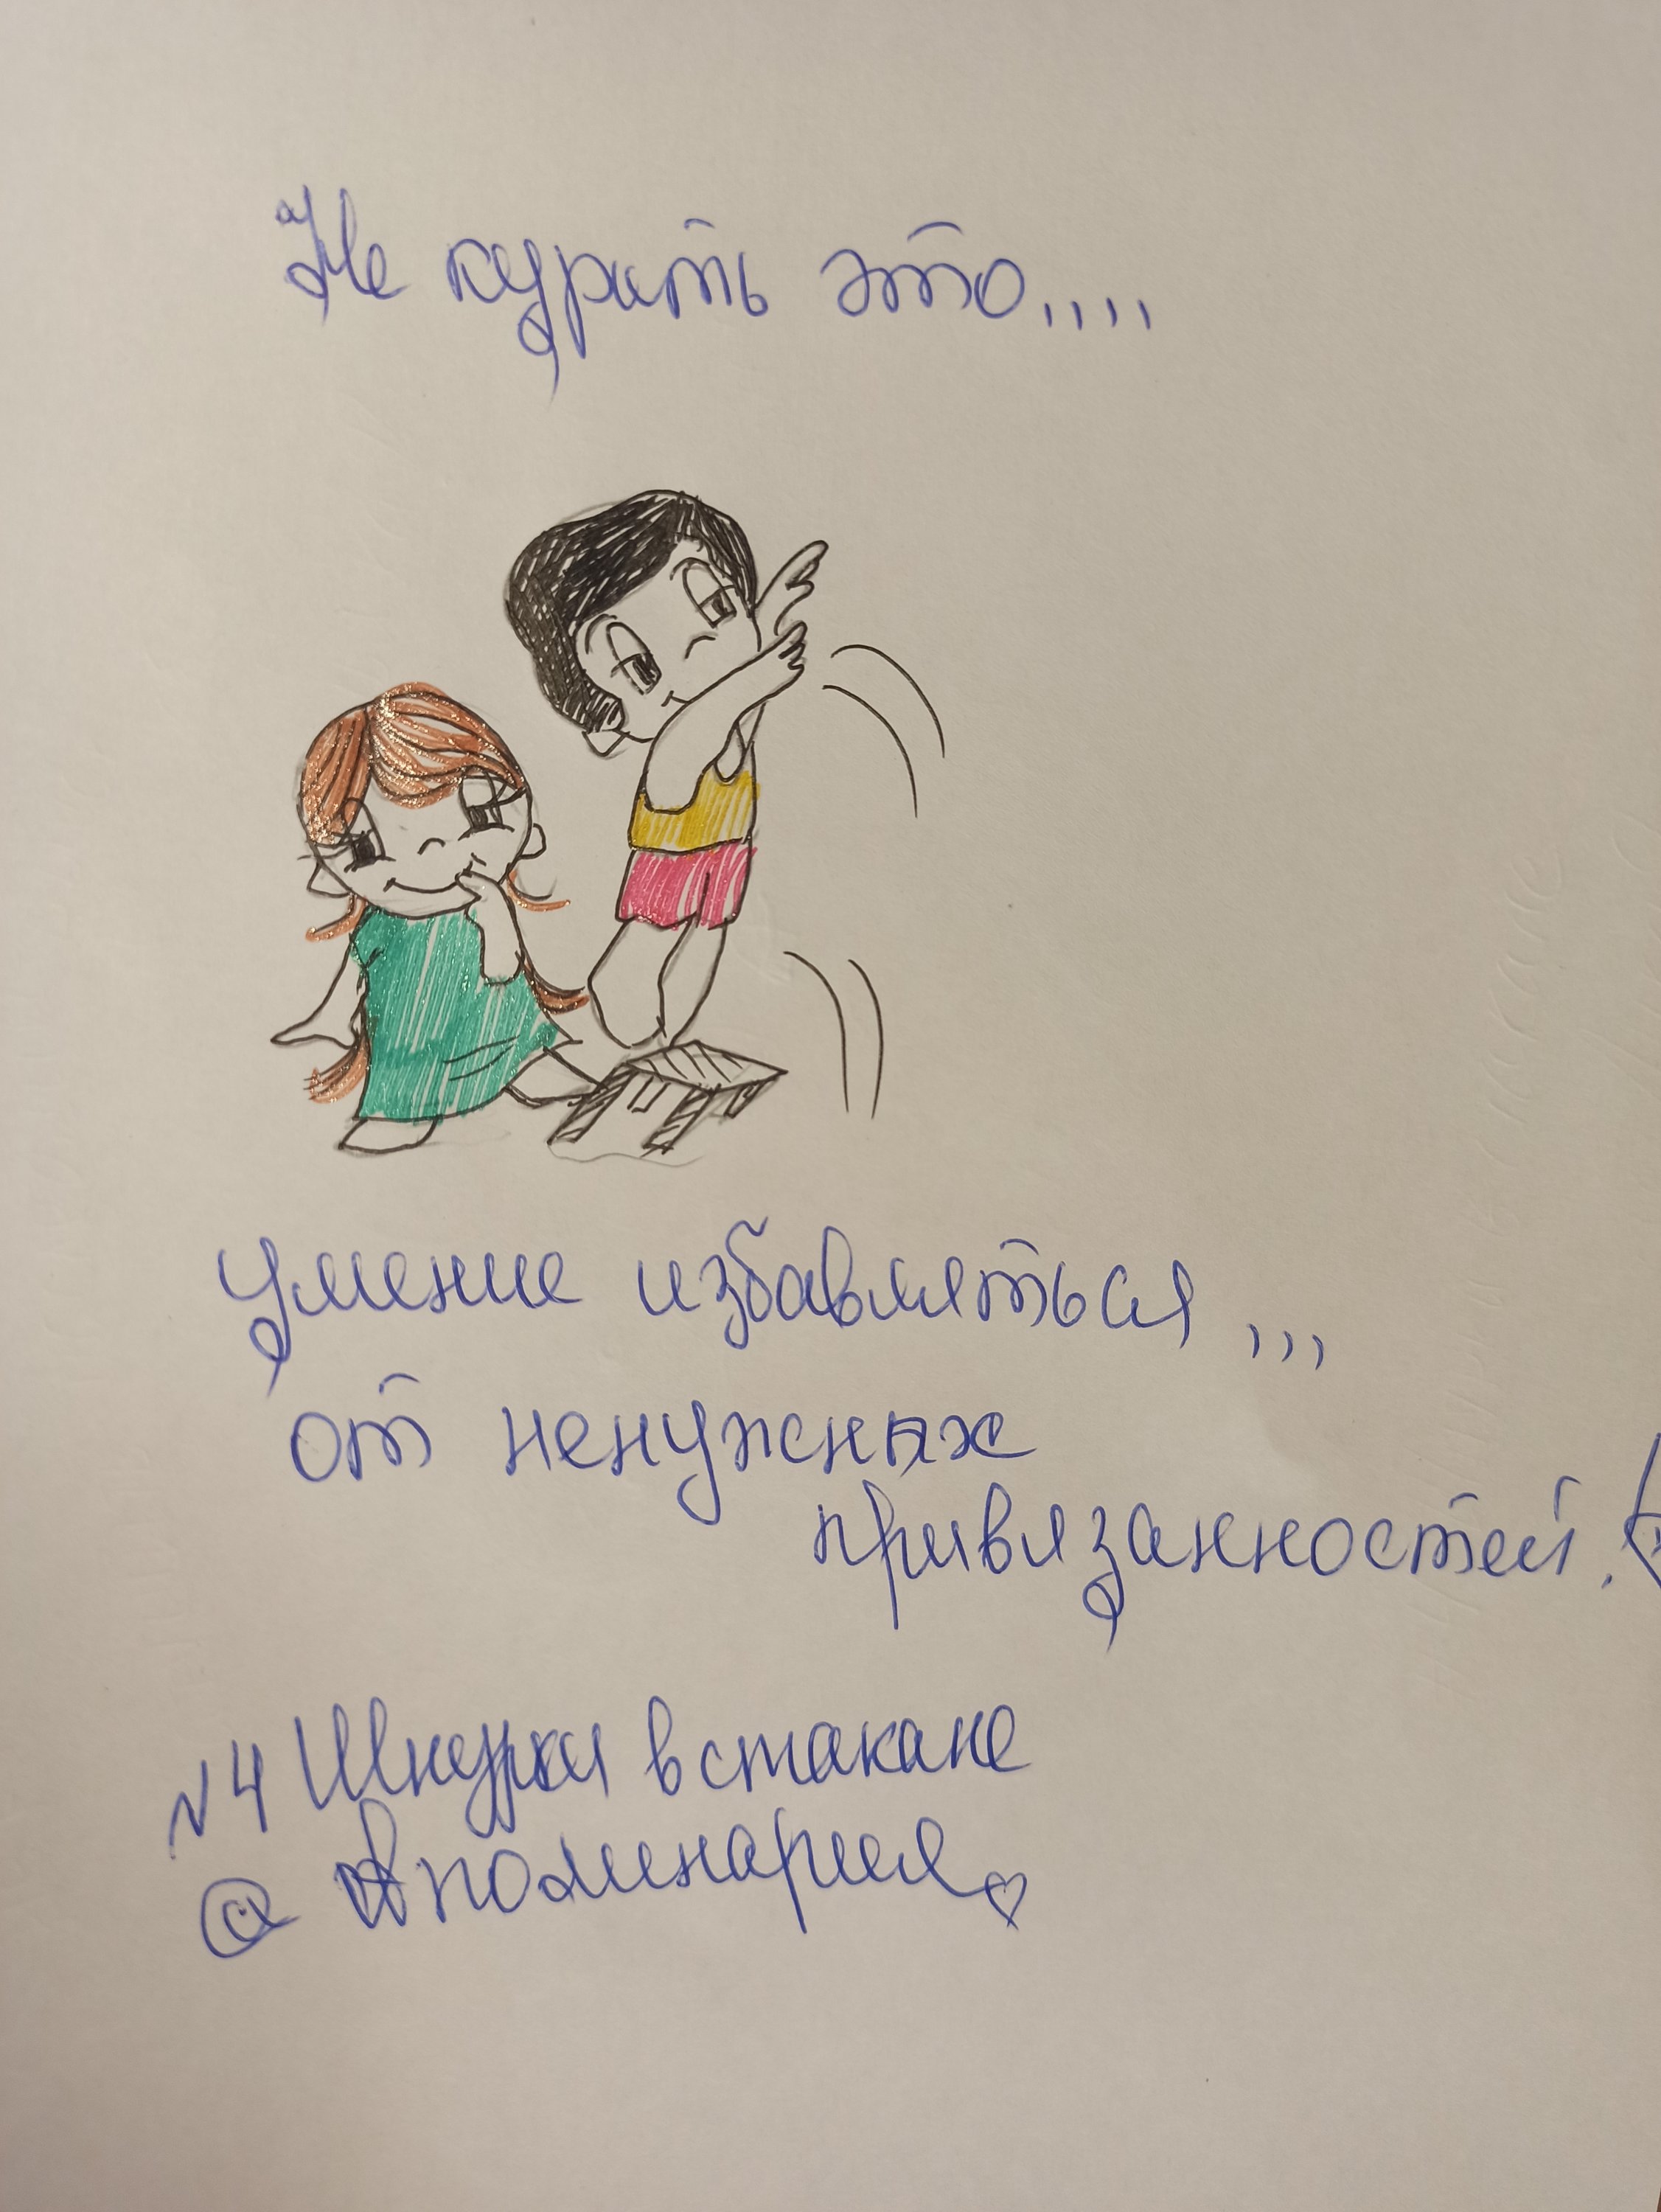 Не курить это....
умение избавляться,,,
от ненужных
привязанностей.
№4 Шнурки в стакане
@ Аполинария♡